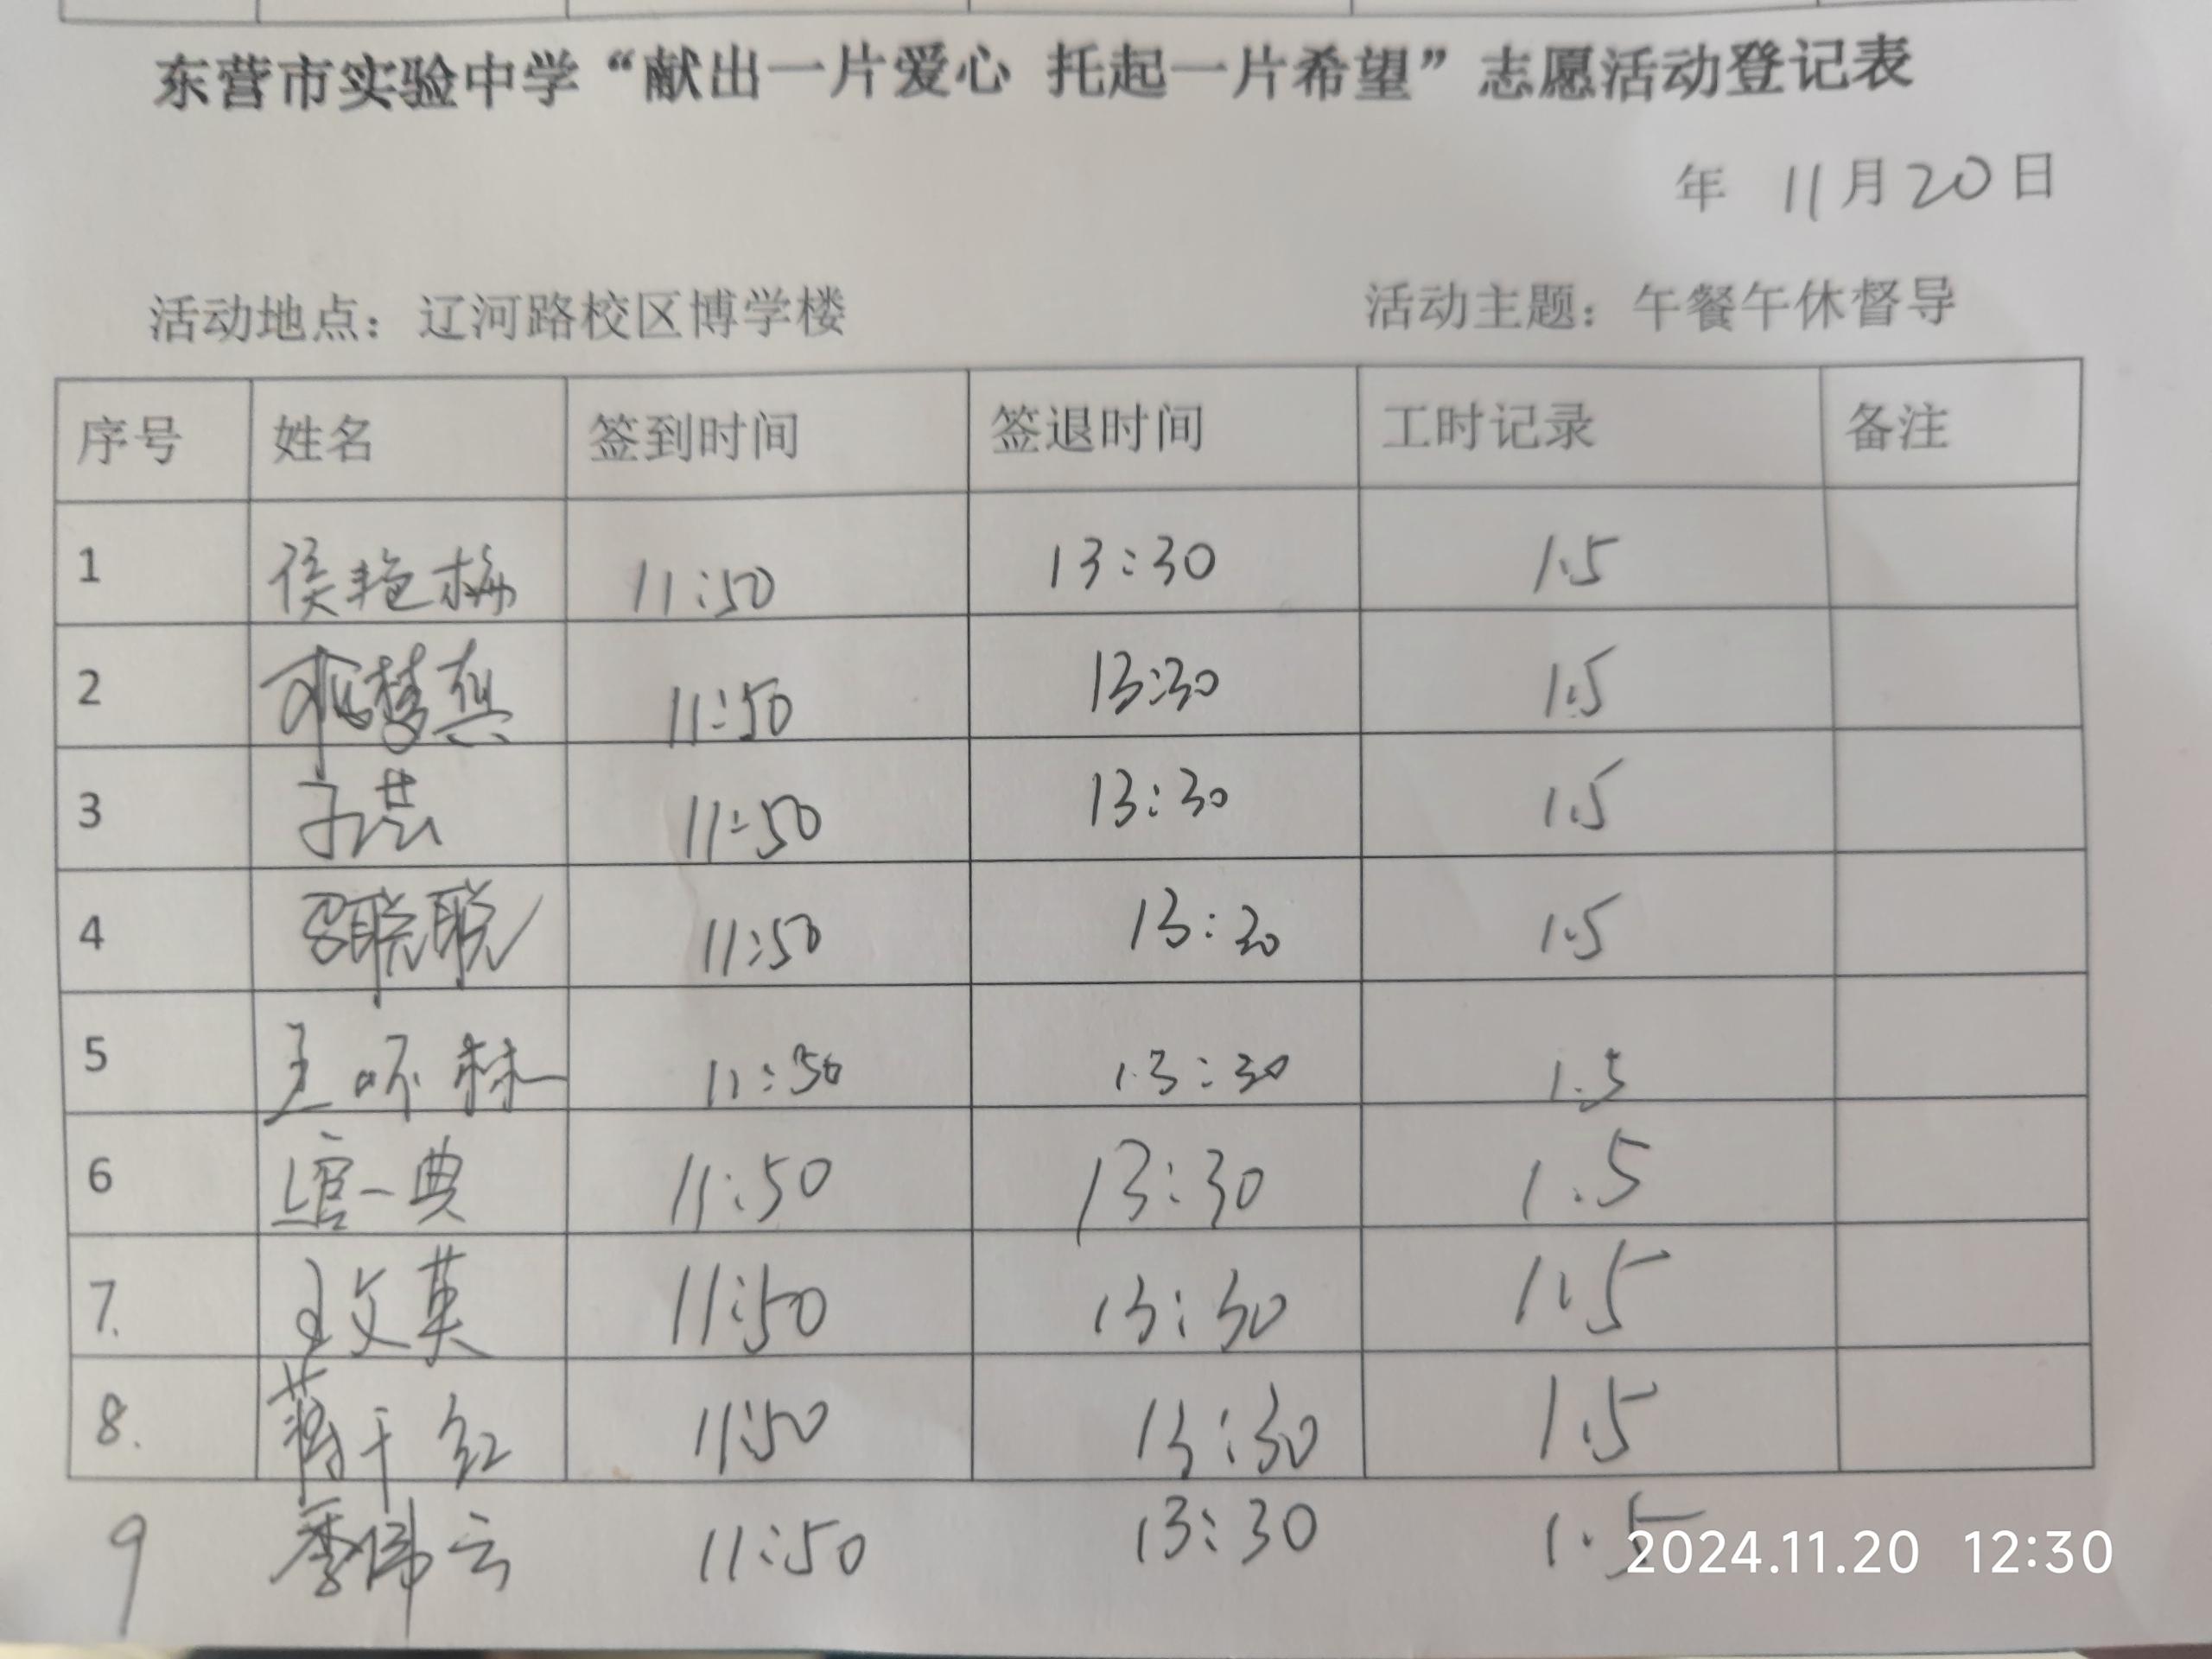 东营市实验中学“献出一片爱心 托起一片希望”志愿活动登记表
年 11月20日
活动地点：辽河路校区博学楼 活动主题：午餐午休督导
序号 姓名 签到时间 签退时间 工时记录 备注
1 侯艳梅 11:50 13:30 1.5
2 11:50 13:30 1.5
3 11:50 13:30 1.5
4 11:50 13:30 1.5
5 王 林 11:50 13:30 1.5
6 一典 11:50 13:30 1.5
7. 王文英 11:50 13:30 1.5
8. 蒋千红 11:50 13:30 1.5
9 季 云 11:50 13:30 1.5
2024.11.20 12:30